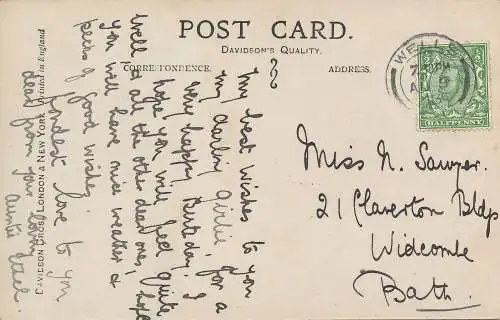 POST CARD.
DAVIDSON'S QUALITY.
CORRESPONDENCE.
ADDRESS.
Printed in England
DAVIDSON BROS. LONDON & NEW YORK
WELLS
HALFPENNY
My best wishes to you
my darling Girlie for a
very happy Birthday. I
hope you will feel quite
well & all the other dear ones, I hope
you will have nice weather &
pecks of good wishes
fondest love to you
dear from your
auntie Ethel.
Miss N. Sawyer.
21 Claverton Bldg
Widcombe
Bath.